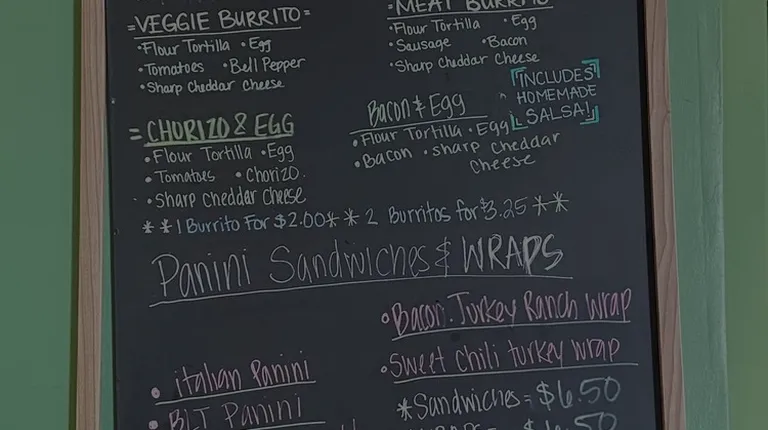 =VEGGIE BURRITO=
•Flour Tortilla •Egg
•Tomatoes •Bell Pepper
•Sharp Cheddar Cheese
=MEAT BURRITO
•Flour Tortilla •Egg
•Sausage •Bacon
•Sharp Cheddar Cheese
INCLUDES
HOMEMADE
SALSA!
=CHORIZO & EGG
•Flour Tortilla •Egg
•Tomatoes •Chorizo
•Sharp Cheddar Cheese
Bacon & Egg
•Flour Tortilla •Egg
•Bacon •Sharp Cheddar
Cheese
**1 Burrito For $2.00** 2 Burritos for $3.25**
Panini Sandwiches & WRAPS
•italian Panini
•BLT Panini
•Bacon.Turkey Ranch Wrap
•Sweet chili turkey wrap
*Sandwiches= $6.50